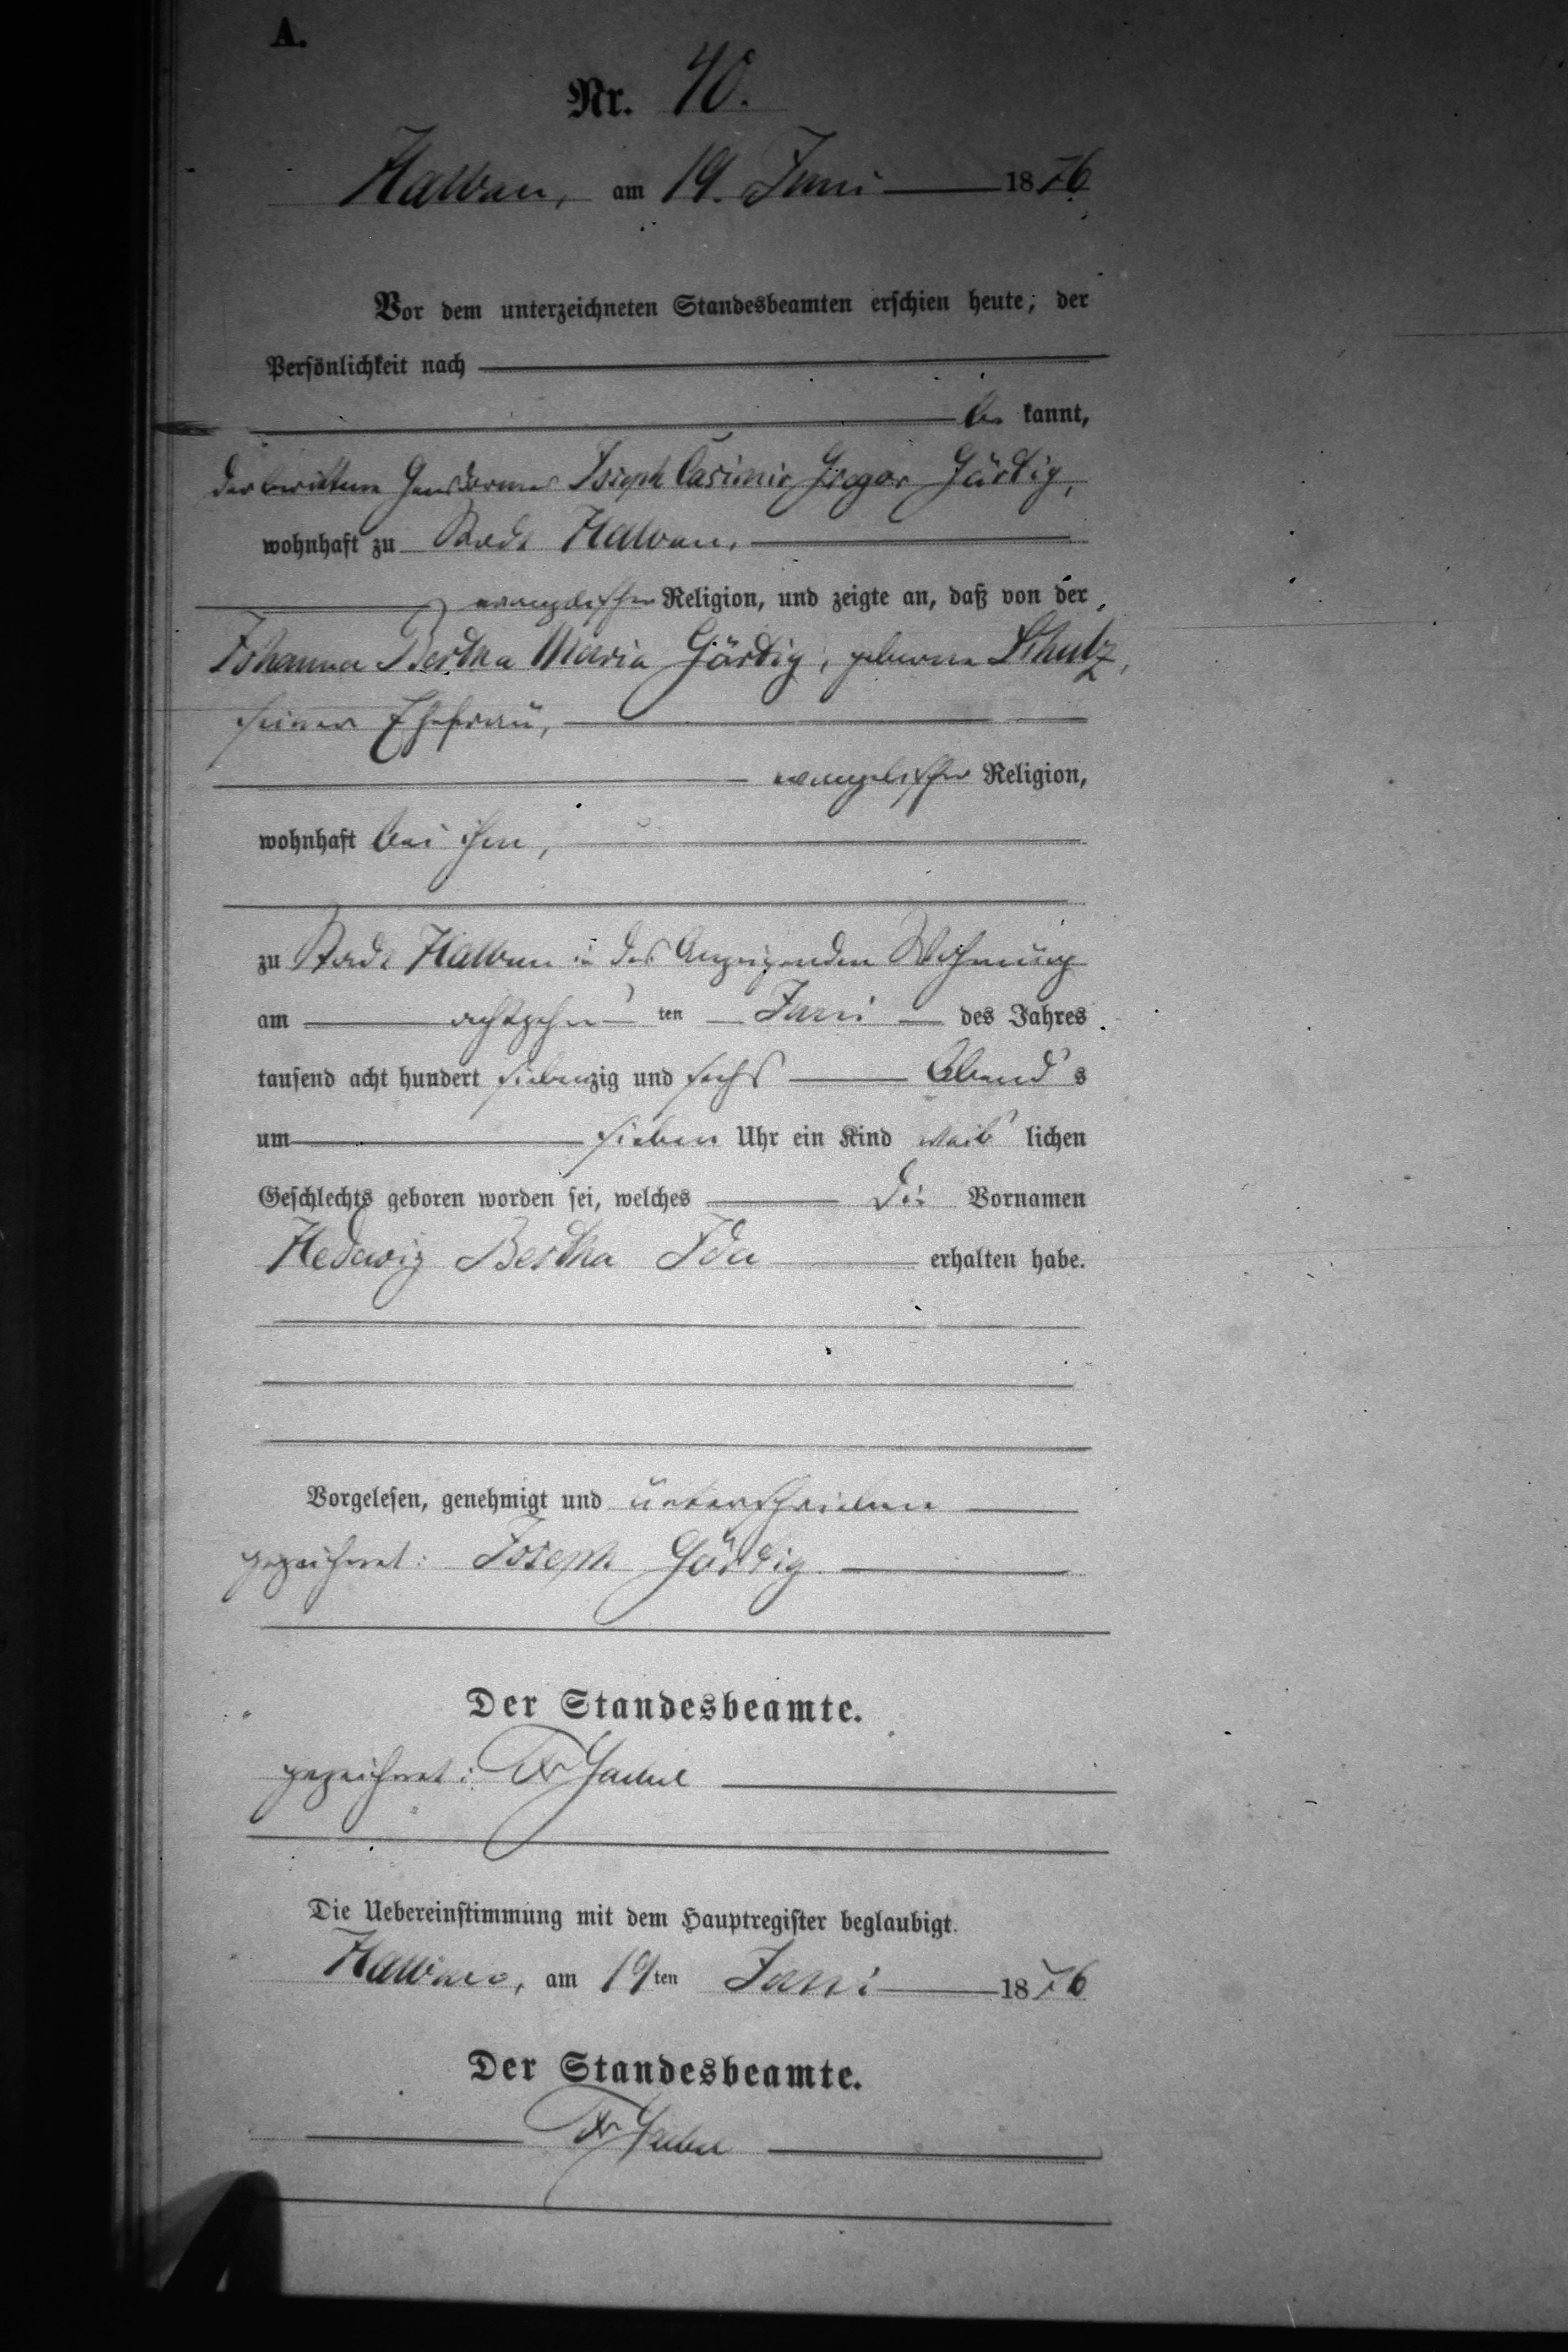 A.
Nr. 40.
Halbau, am 19. Juni 1876
Vor dem unterzeichneten Standesbeamten erschien heute; der
Persönlichkeit nach
be kannt,
der berittene Gendarme Joseph Casimir Gregor Gärtig,
wohnhaft zu Stadt Halbau,
evangelischer Religion, und zeigte an, daß von der
Johanna Bertha Maria Gärtig, geborene Schulz,
seiner Ehefrau,
evangelischer Religion,
wohnhaft bei ihm,
zu Stadt Halbau in des Anzeigenden Wohnung
am achtzehn ten Juni des Jahres
tausend acht hundert siebenzig und sechs Abend s
um sieben Uhr ein Kind weib lichen
Geschlechts geboren worden sei, welches die Vornamen
Hedwig Bertha Ida erhalten habe.
Vorgelesen, genehmigt und unterschrieben
gezeichnet: Joseph Gärtig.
Der Standesbeamte.
gezeichnet:
Die Uebereinstimmung mit dem Hauptregister beglaubigt.
Halbau, am 19ten Juni 1876
Der Standesbeamte.